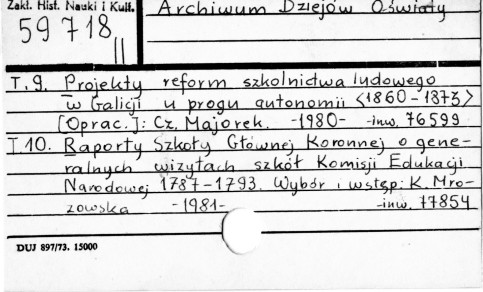 Zakł. Hist. Nauki i Kult.
59718
II
Archiwum Dziejów Oświaty
T.9. Projekty reform szkolnictwa ludowego
w Galicji u progu autonomii <1860-1873>
[Oprac.]: Cz. Majorek. -1980- -inw. 76599
T 10. Raporty Szkoły Głównej Koronnej o gene-
ralnych wizytach szkół Komisji Edukacji
Narodowej 1787-1793. Wybór i wstęp: K. Mro-
zowska -1981- -inw. 77854
DUJ 897/73. 15000